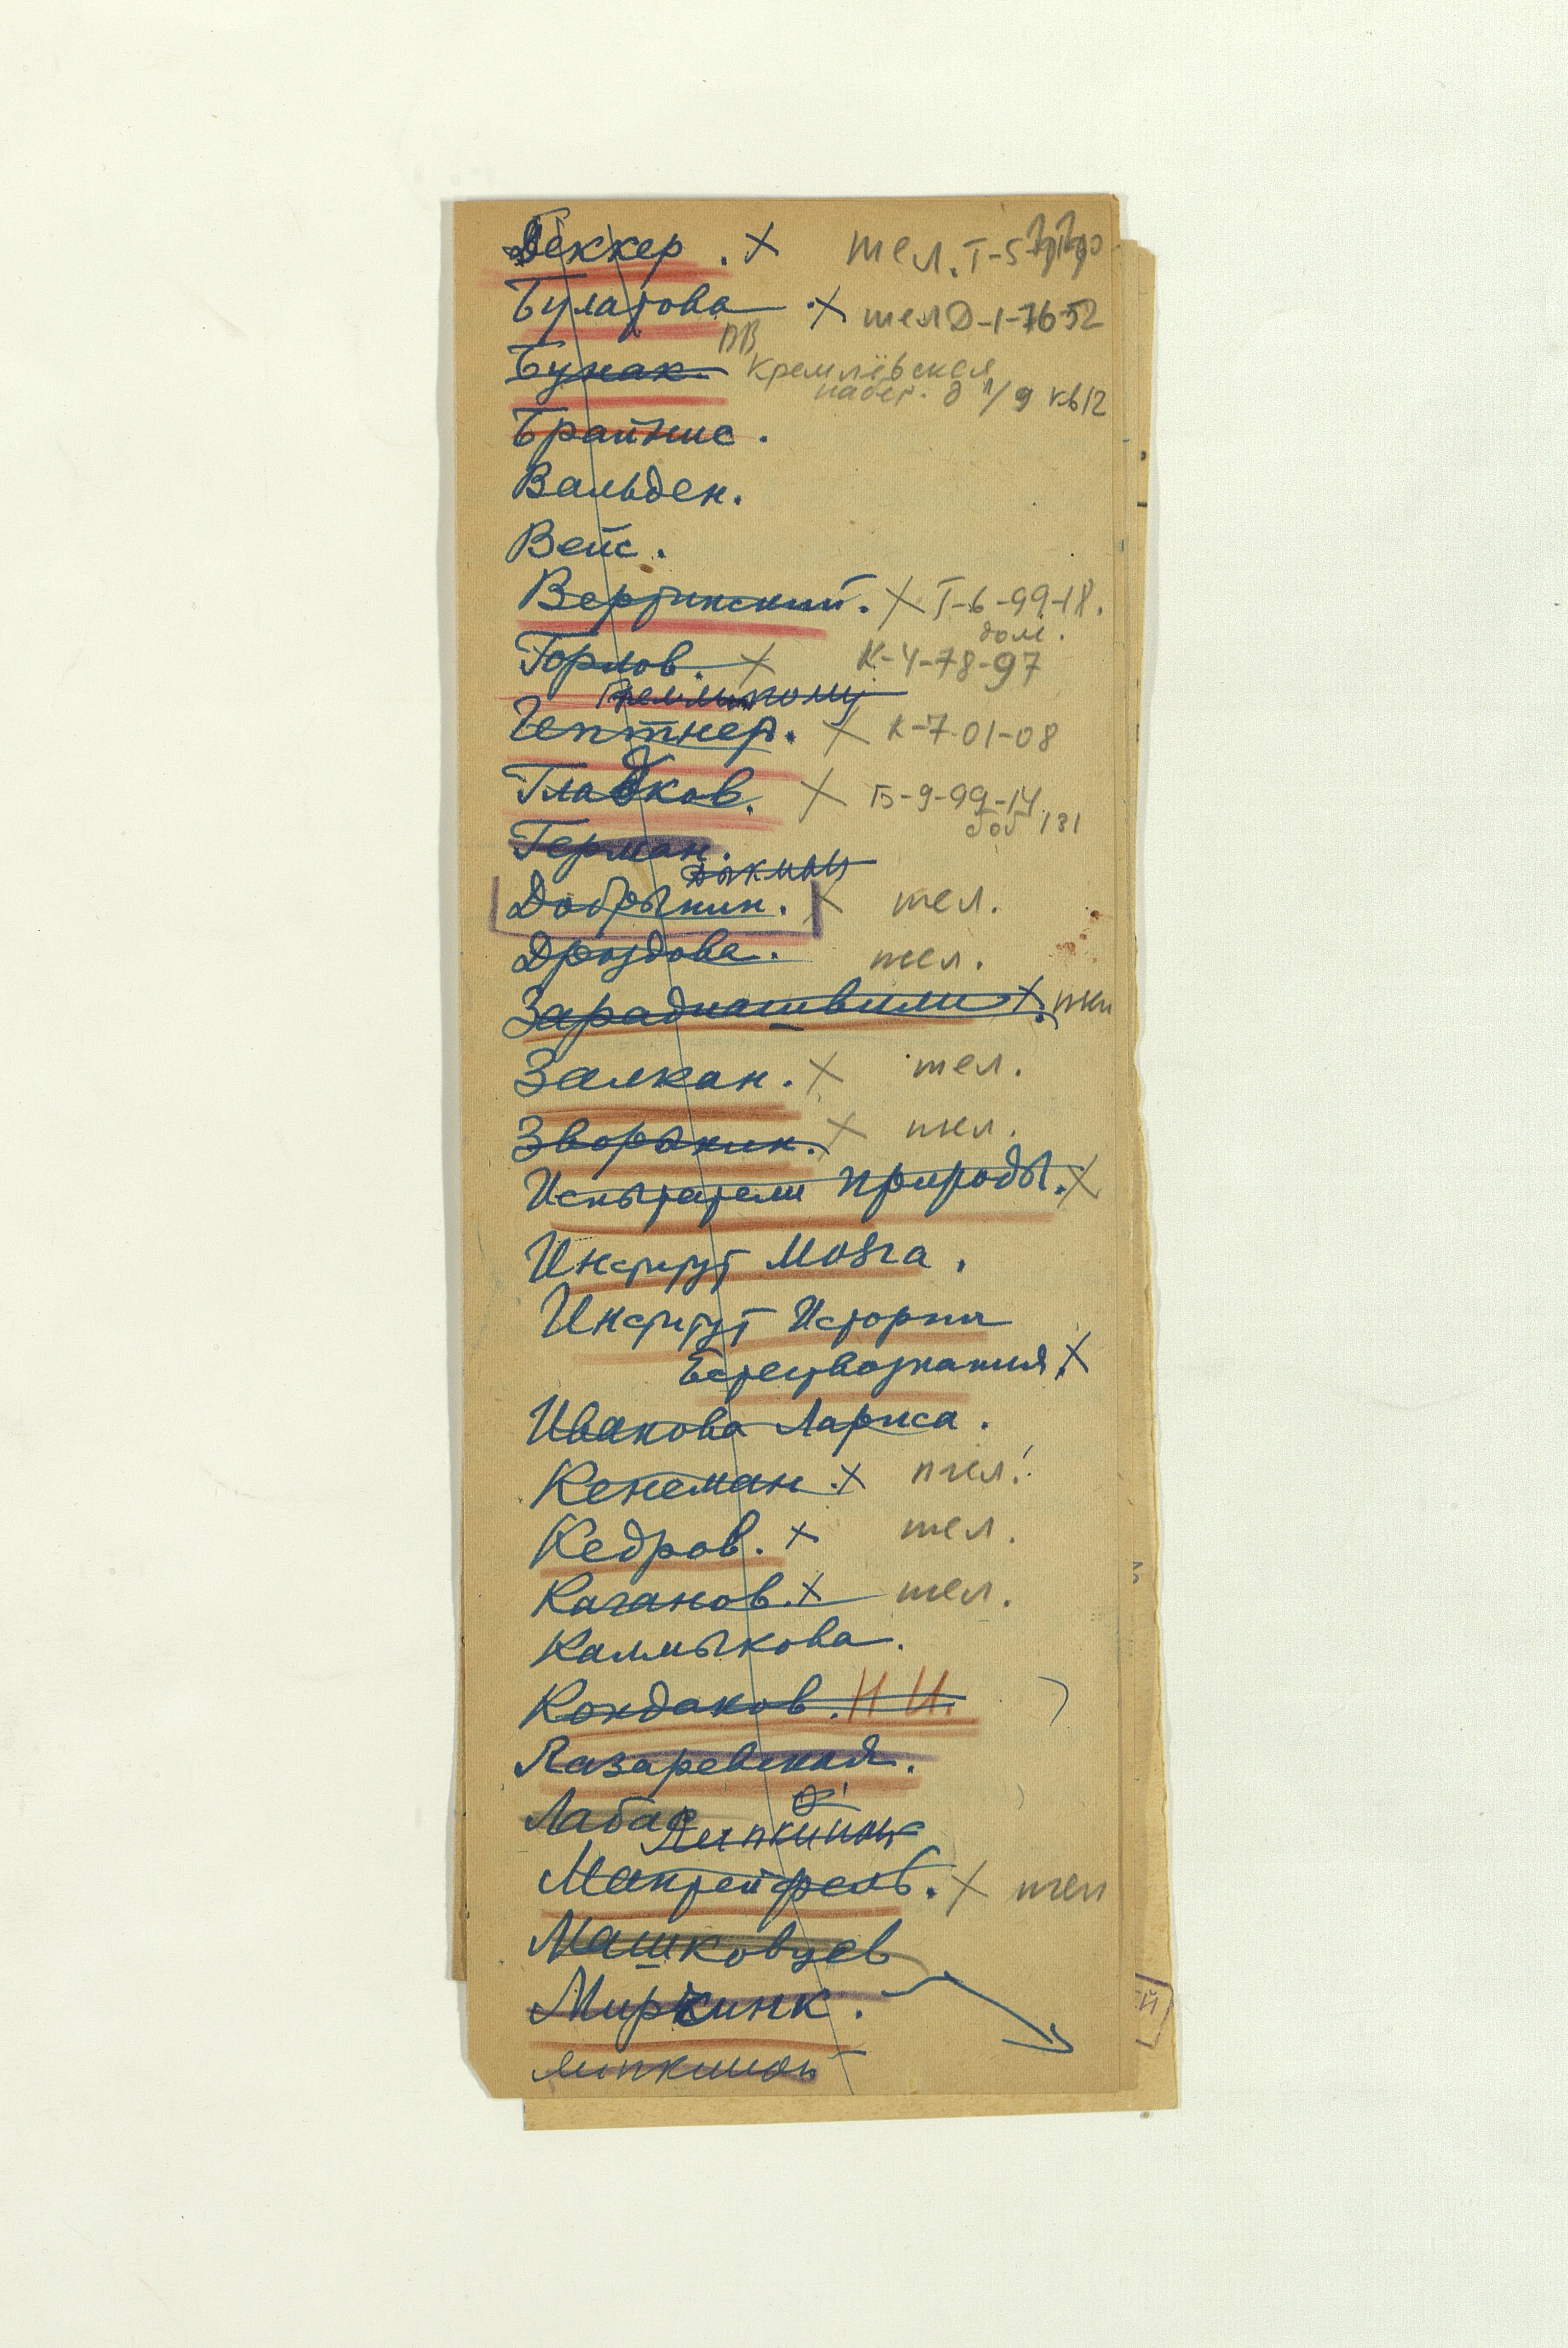 Беккер . × тел. Г-5-
Булатова . × тел Д-1-76-52
ВВ
Бунак. Кремлёвская
набер. д 1/9 кв 12
Брайнис.
Вальден.
Вейс.
Вертинский. × Г-6-99-18.
дом.
Горлов. × К-4-78-97
Гремяцкому
Гептнер. × К-7-01-08
Гладков. × Б-9-99-14
доб 131
Герман.
Дикман
Добрынин. × тел.
Дроздова. тел.
Зарадиашвили ×. тел
Залкан. × тел.
Зворыкин. × тел.
Испытатели Природы. ×
Институт Мозга.
Институт Истории
Естествознания. ×
Иванова Лариса.
Кенеман. × тел.
Кедров. × тел.
Каганов. × тел.
Калмыкова.
Кондаков. Н И.
Лазаревская.
Лабас
Липкиной
Мантейфель. × тел
Машковцев
Мирчинк.
Липкиной